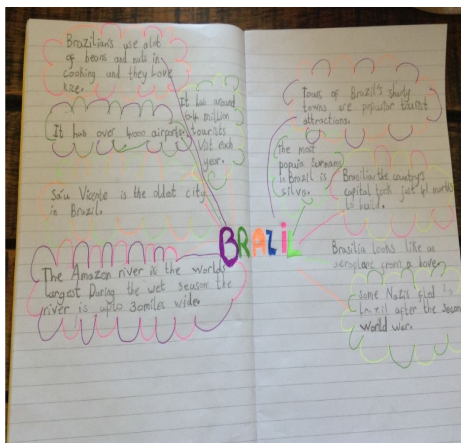 Brazilian's use alot
of beans and nuts in
cooking and they love
It has over 4000 airports.
It has around
6.4 million
tourists
visit each
year.
São Vicente is the oldest city
in Brazil.
The Amazon river is the worlds
largest During the wet season the
river is upto 30miles wide.
BRAZIL
Tours of Brazil's shanty
towns are popular tourist
attractions.
The most
popular surname
in Brazil is
silva.
Brasilia the country's
capital took just 41 months
to build.
Brasilia looks like an
aeroplane from above.
some Nazis fled to
brazil after the second
World war.